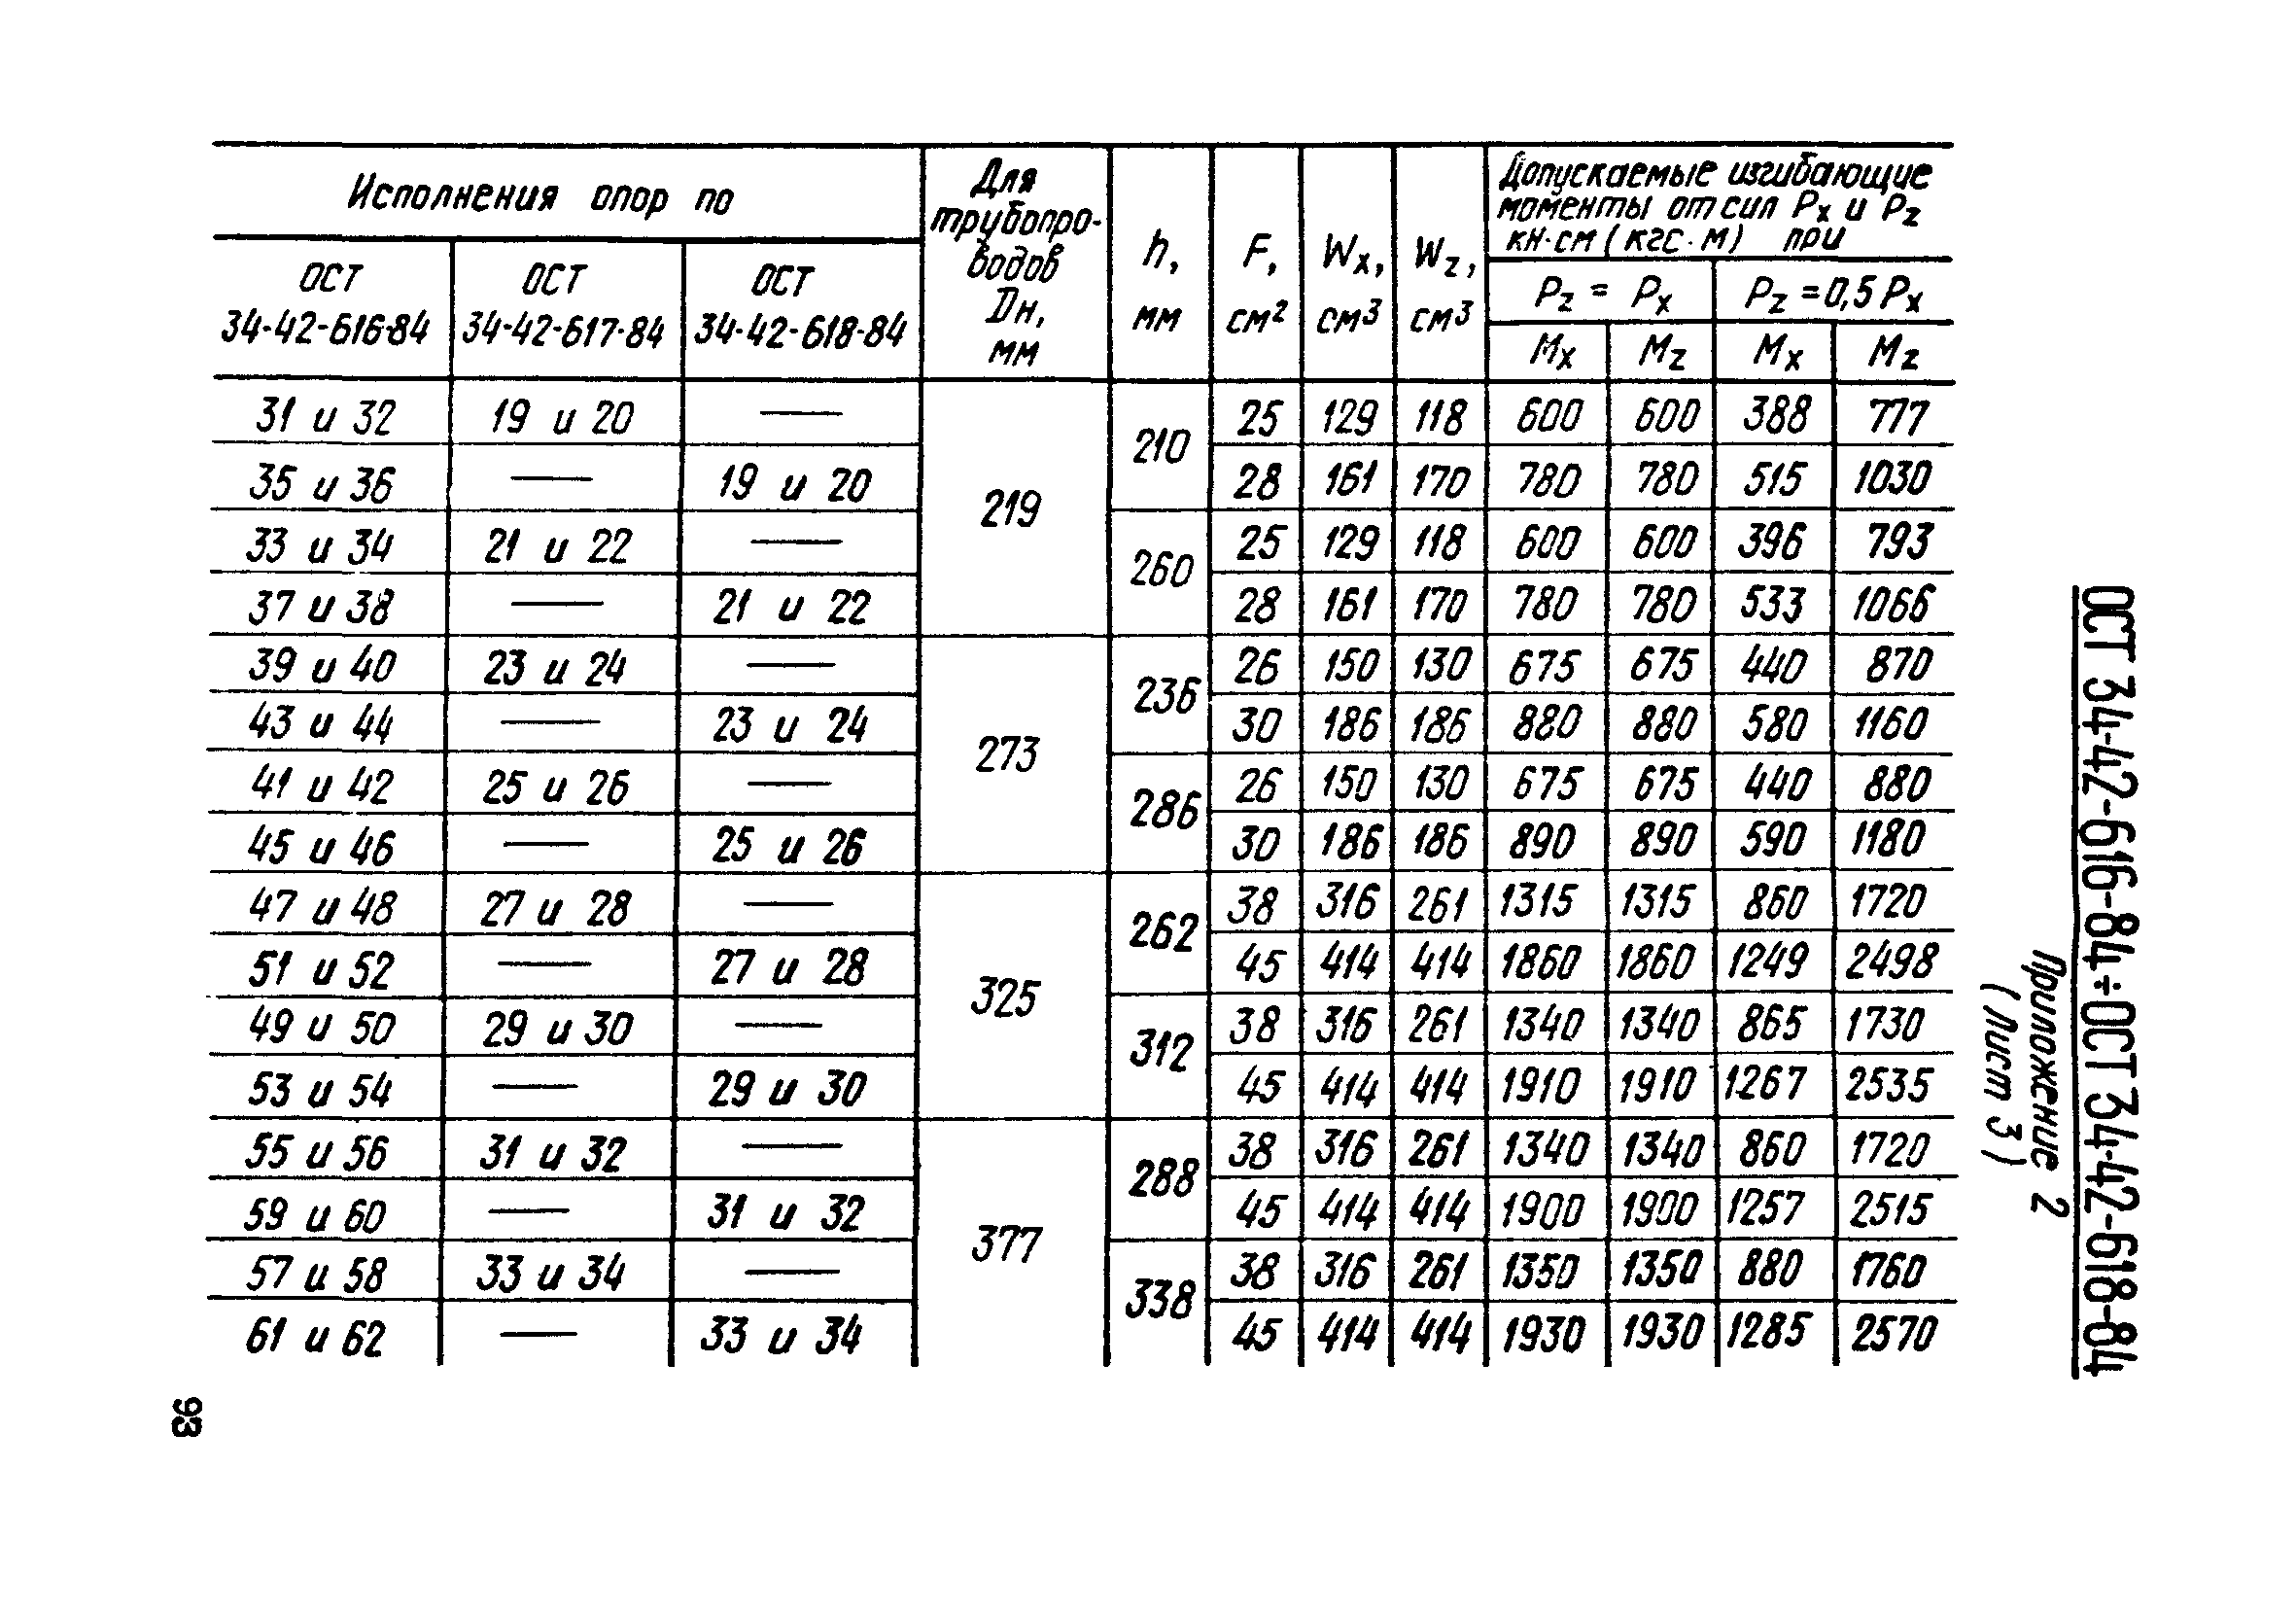 ОСТ 34-42-616-84÷ОСТ 34-42-618-84
Приложение 2
(Лист 3)
Исполнения опор по
Для трубопро-водов Dн, мм
h, мм
F, см²
Wx, см³
Wz, см³
Допускаемые изгибающие
моменты от сил Px и Pz
кн·см (кгс·м) при
ОСТ 34-42-616-84
ОСТ 34-42-617-84
ОСТ 34-42-618-84
Pz = Px
Pz = 0,5 Px
Mx Mz Mx Mz
31 и 32 19 и 20 — 219 210 25 129 118 600 600 388 777
35 и 36 — 19 и 20 28 161 170 780 780 515 1030
33 и 34 21 и 22 — 260 25 129 118 600 600 396 793
37 и 38 — 21 и 22 28 161 170 780 780 533 1066
39 и 40 23 и 24 — 273 236 26 150 130 675 675 440 870
43 и 44 — 23 и 24 30 186 186 880 880 580 1160
41 и 42 25 и 26 — 286 26 150 130 675 675 440 880
45 и 46 — 25 и 26 30 186 186 890 890 590 1180
47 и 48 27 и 28 — 325 262 38 316 261 1315 1315 860 1720
51 и 52 — 27 и 28 45 414 414 1860 1860 1249 2498
49 и 50 29 и 30 — 312 38 316 261 1340 1340 865 1730
53 и 54 — 29 и 30 45 414 414 1910 1910 1267 2535
55 и 56 31 и 32 — 377 288 38 316 261 1340 1340 860 1720
59 и 60 — 31 и 32 45 414 414 1900 1900 1257 2515
57 и 58 33 и 34 — 338 38 316 261 1350 1350 880 1760
61 и 62 — 33 и 34 45 414 414 1930 1930 1285 2570
93